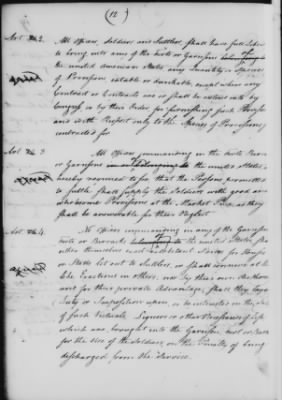 (12)
Art. 2.
All Officers, Soldiers, and Suttlers, shall have full Liberty
to bring into any of the Forts or Garrisons
the united American States any Quantity or Species
of Provisions eatable or drinkable, except where any
Contract or Contracts are or shall be entered into by
Congress or by their Order for furnishing such Provisions
and with Respect only to the Species of Provisions
contracted for
Art. 3
All Officers commanding in the Forts,
or Garrisons the united States
hereby required to see that the Persons permitted
to suttle shall supply the Soldiers with good and
wholesome Provisions at the Market Price as they
shall be answerable for their Neglect
Art. 4.
No Officers commanding in any of the Garrisons
Forts or Barracks the united States, shall
either themselves exact exorbitant Prices for Houses
or Stalls let out to Suttlers, or shall connive at the
like Exactions in others, nor by their own Authority
and for their private Advantage, shall they lay any
Duty or Imposition upon, or be interested in the Sale
of such Victuals, Liquors or other Necessaries of Life
which are brought into the Garrison, Fort or
for the Use of the Soldiers, on the Penalty of being
discharged from the Service.